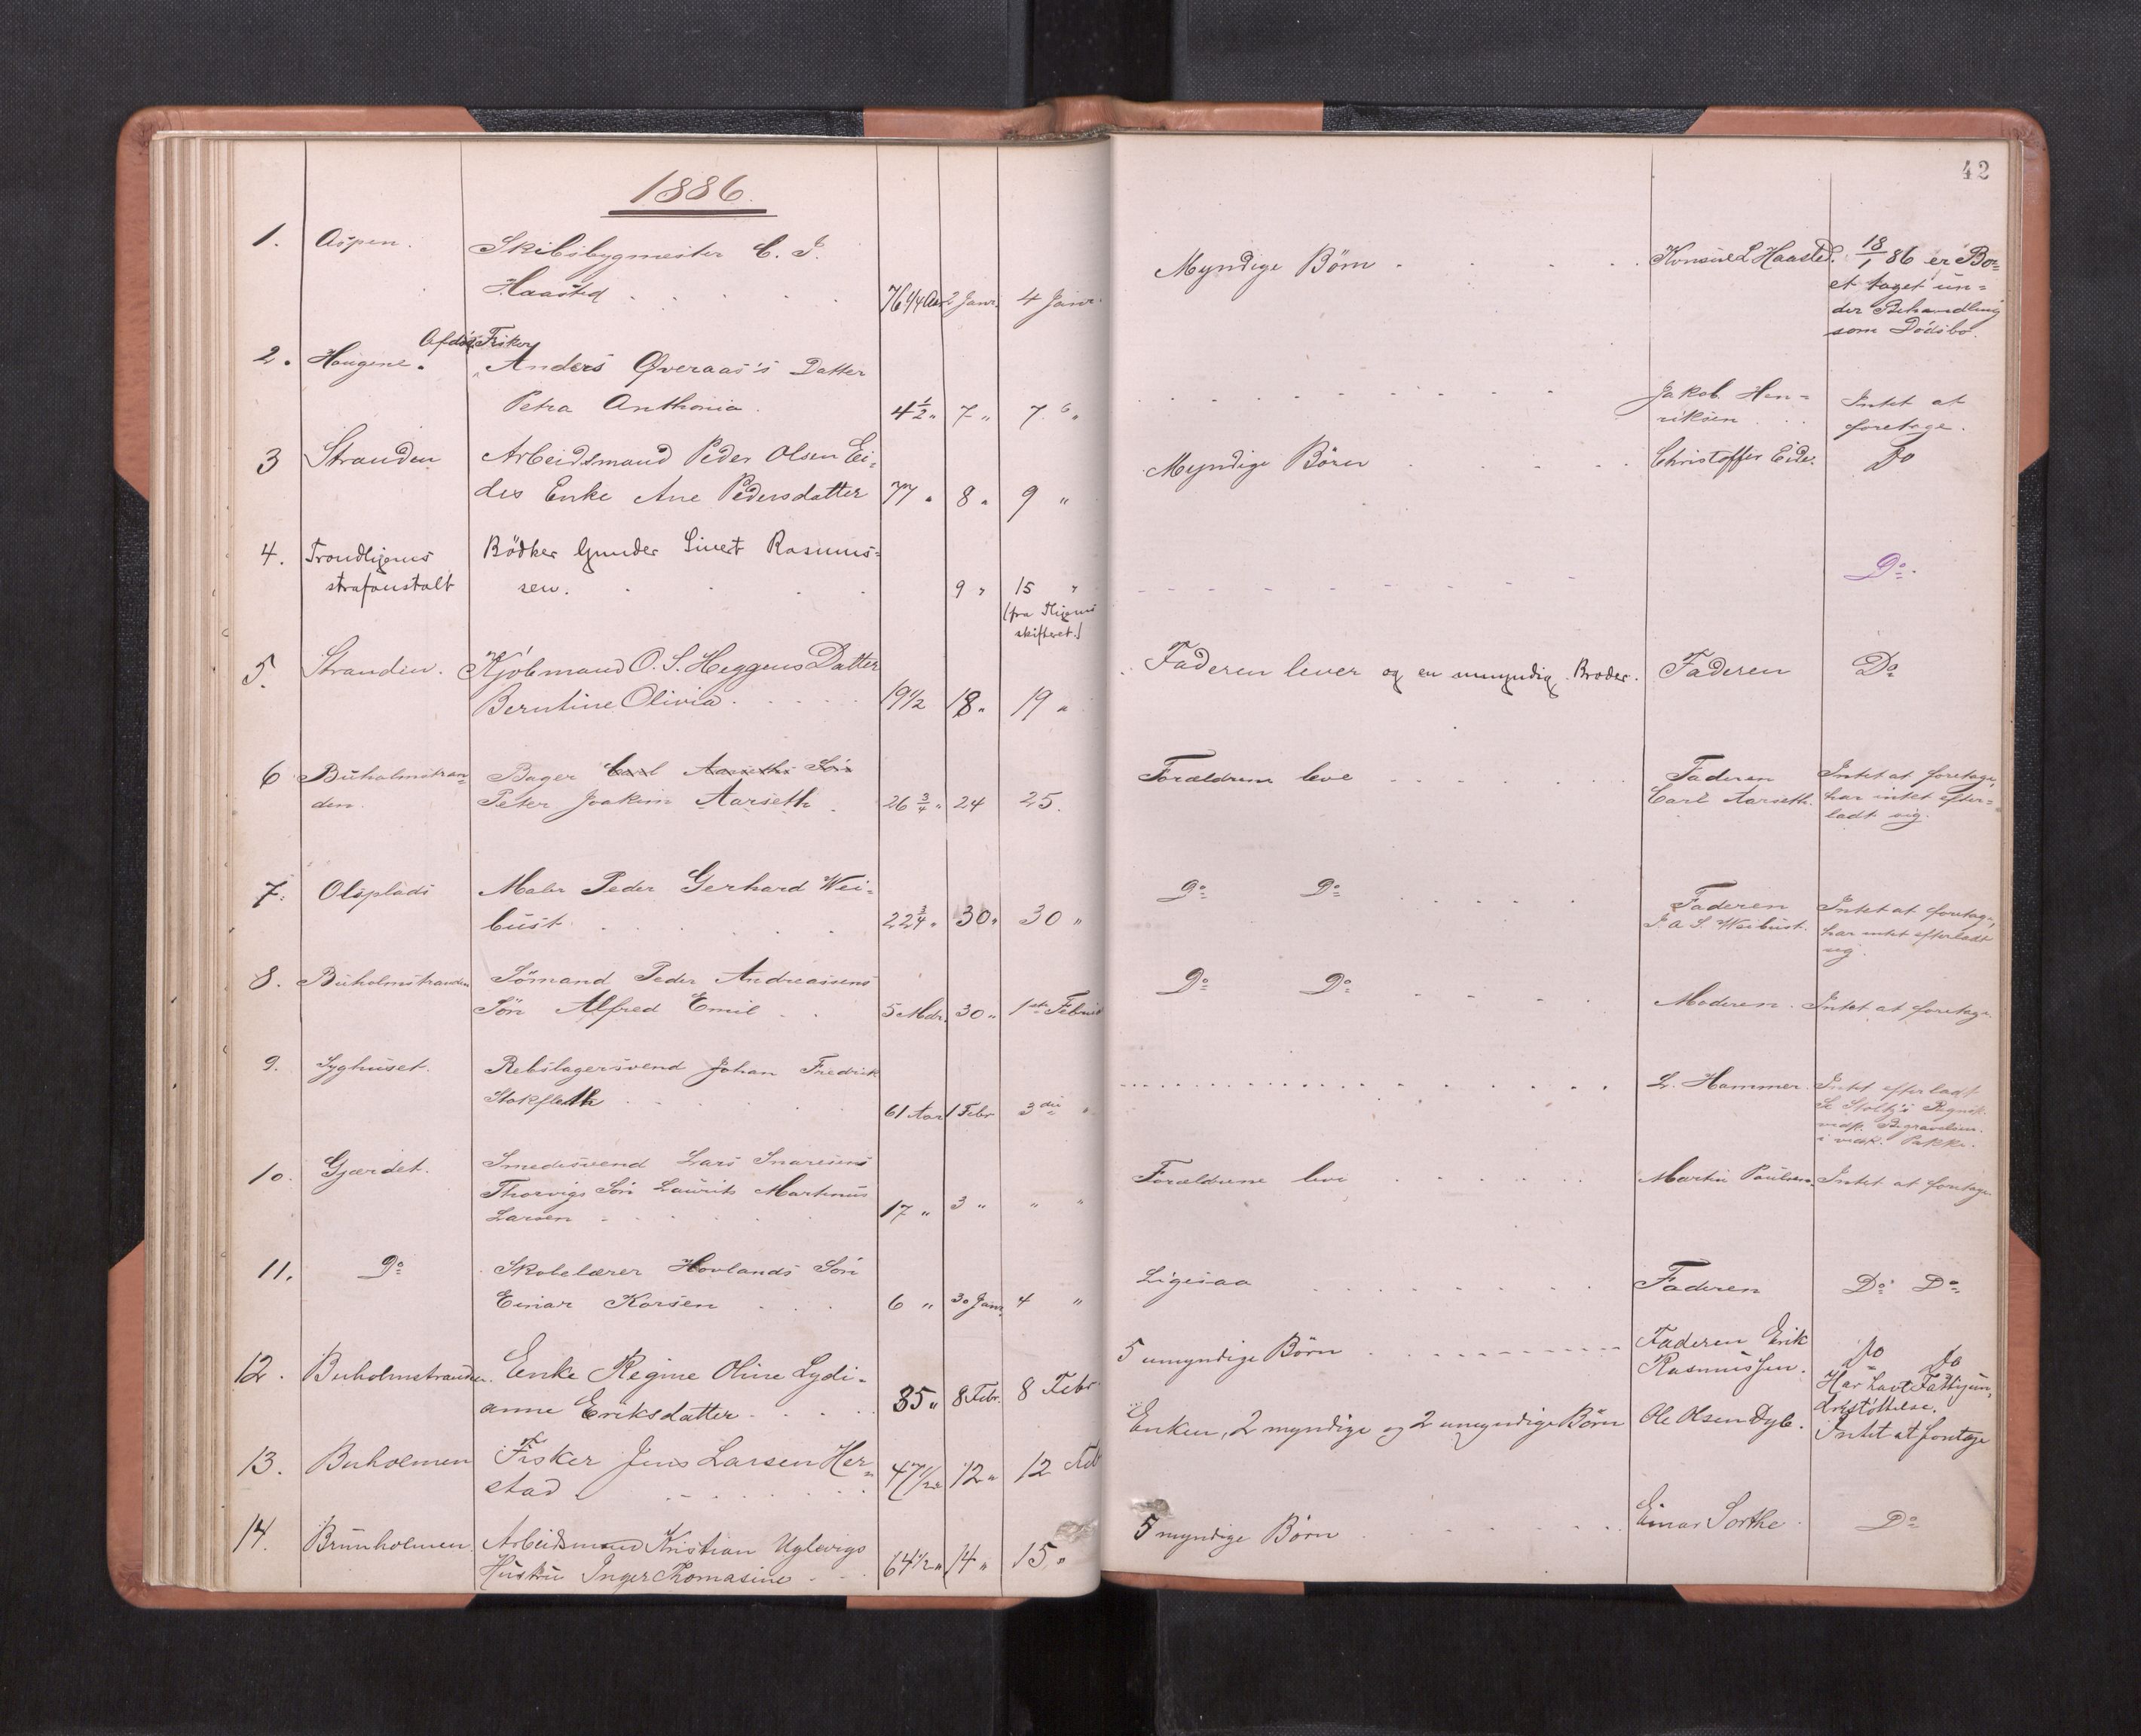 1886.
42
1. Aspen. Skibsbygmester C. J.
Haasted 76 1/4 Aar 2 Janr. 4 Janr.
Myndige Børn Konsul L Haasted. 18/1 86 er Bo=
et taget un=
der Behandling
som Dødsbo.
Afdøde Fisker
2. Haugene. Anders Øveraas's Datter
Petra Anthonia. 4 1/2 " 7 " 7. "
Jakob Hen=
riksen Intet at
foretage.
3 Stranden Arbeidsmand Peder Olsen Ei=
des Enke Ane Pedersdatter 77 " 8 " 9 "
Myndige Børn Christoffer Eide. Do
4. Trondhjems Bödker Gunder Sivert Rasmus=
strafanstalt sen. 9 " 15 "
(fra Thjems
skifteret.)
Do.
5. Stranden. Kjöbmand O. S. Heggens Datter
Berntine Olivia 19 1/2 18 " 19 "
Faderen lever og en umyndig Broder. Faderen Do
6 Buholmstran=
den. Bager Carl Aarseths Søn
Peter Joakim Aarseth 26 3/4 " 24 25.
Forældrene leve Faderen
Carl Aarseth. Intet at foretage,
har intet efter=
ladt sig.
7. Olsplads Maler Peder Gerhard Wei=
bust 22 3/4 " 30 " 30 "
Do Do Faderen
P. A. S. Weibust. Intet at foretage,
har intet efterladt
sig.
8. Buholmstranden Sömand Peder Andreassens
Sön Alfred Emil 5 Mdr. 30 " 1ste Februar
Do Do Moderen. Intet at foretage.
9. Syghuset. Rebslagersvend Johan Fredrik
Stokfleth 61 Aar 1 Febr 3die "
L. Hammer. Intet efterladt
Begravelsen
i vedk. Pakke.
10. Gjærdet. Smedesvend Lars
Thorvigs Søn Laurits Martinus
Larsen 17 " 3 " " "
Forældrene leve Martin Paulsen. Intet at foretage
11. Do Skolelærer Hovlands Søn
Einar Korsen 6 " 30 Janr. 4 "
Ligesaa Faderen Do Do
12. Buholmstranden. Enke Regine Oline Lydi=
anne Eriksdatter 35 " 8 Febr. 8 Febr.
5 umyndige Børn Faderen Erik
Rasmussen. Do Do
Har havt Fattigun=
derstøttelse.
13. Buholmen Fisker Jens Larsen Her=
stad 47 1/2 " 12 " 12 Feb
Enken, 2 myndige og 2 umyndige Børn Ole Olsen Dyb. Intet at foretage
14. Brunholmen. Arbeidsmand Kristian Uglevigs
Hustru Inger Thomasine 64 1/2 " 14 " 15 "
5 myndige Børn Einar Sorthe Do